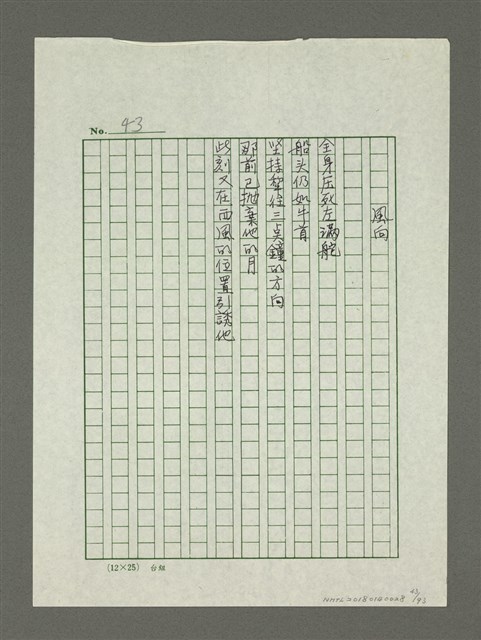 No. 43
風向
全身压死左滿舵
船头仍如牛首
坚持犁往三点鐘的方向
那前已抛棄他的月
此刻又在西風的位置引誘他
(12×25) 台組
NMTL20180180028
43/93